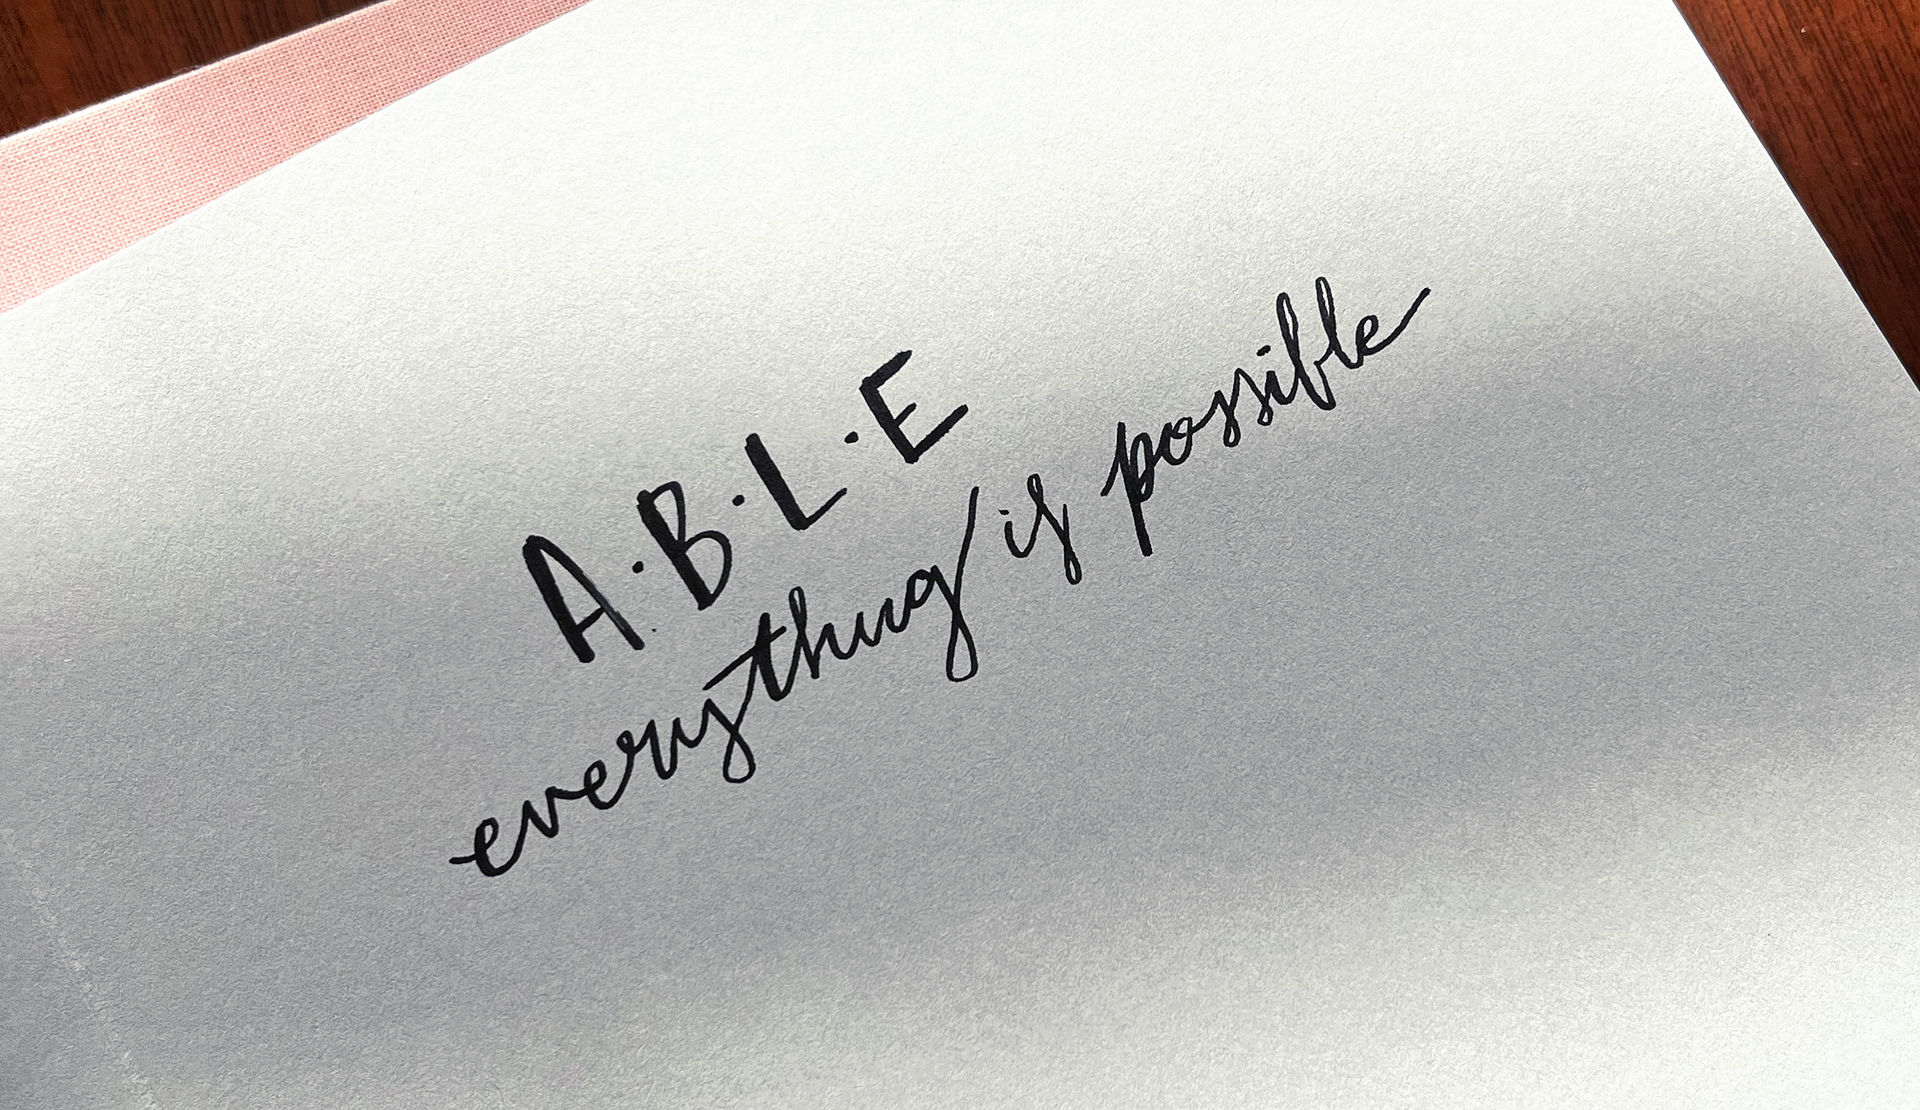 A·B·L·E
everything is possible